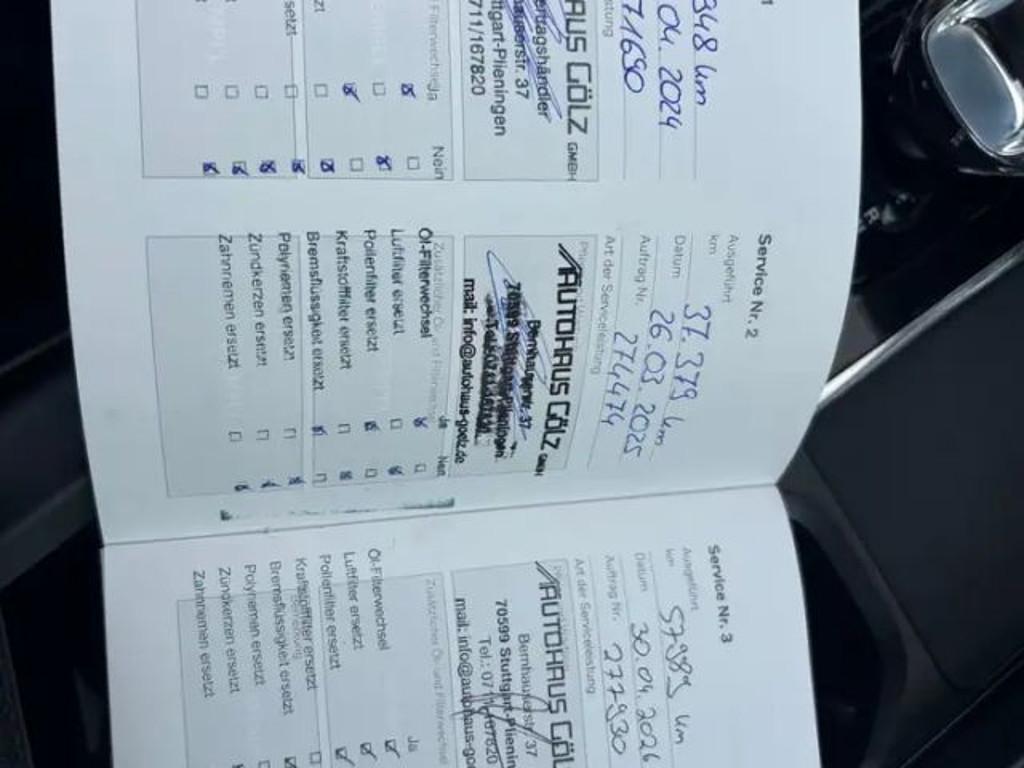 348 km
04. 2024
71690
AUS GÖLZ GMBH
ertragshändler
str. 37
ttgart-Plieningen
711/167820
Filterwechsel
Ja
Nein
ersetzt
Service Nr. 2
Ausgeführt
km 37.379 km
Datum 26.03.2025
Auftrag Nr. 274474
Art der Serviceleistung
AUTOHAUS GÖLZ GMBH
Bernhauserstr. 37
70599 Stuttgart-Plieningen
mail: info@autohaus-goelz.de
Zusätzlicher Öl- und Filterwechsel
Ja Nein
Öl-Filterwechsel
Luftfilter ersetzt
Pollenfilter ersetzt
Kraftstofffilter ersetzt
Bremsflüssigkeit ersetzt
Polyriemen ersetzt
Zündkerzen ersetzt
Zahnriemen ersetzt
Service Nr. 3
Ausgeführt
km 57989 km
Datum 30.04.2026
Auftrag Nr. 277930
Art der Serviceleistung
AUTOHAUS GÖL
Bernhauserstr. 37
70599 Stuttgart-Plienin
Tel.: 0711/167820
mail: info@autohaus-go
Zusätzlicher Öl- und Filterwechsel
Ja
Öl-Filterwechsel
Luftfilter ersetzt
Pollenfilter ersetzt
Kraftstofffilter ersetzt
Bremsflüssigkeit ersetzt
Polyriemen ersetzt
Zündkerzen ersetzt
Zahnriemen ersetzt